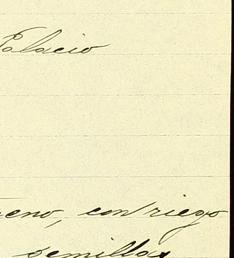 Palacio
eno, con riego
semillas